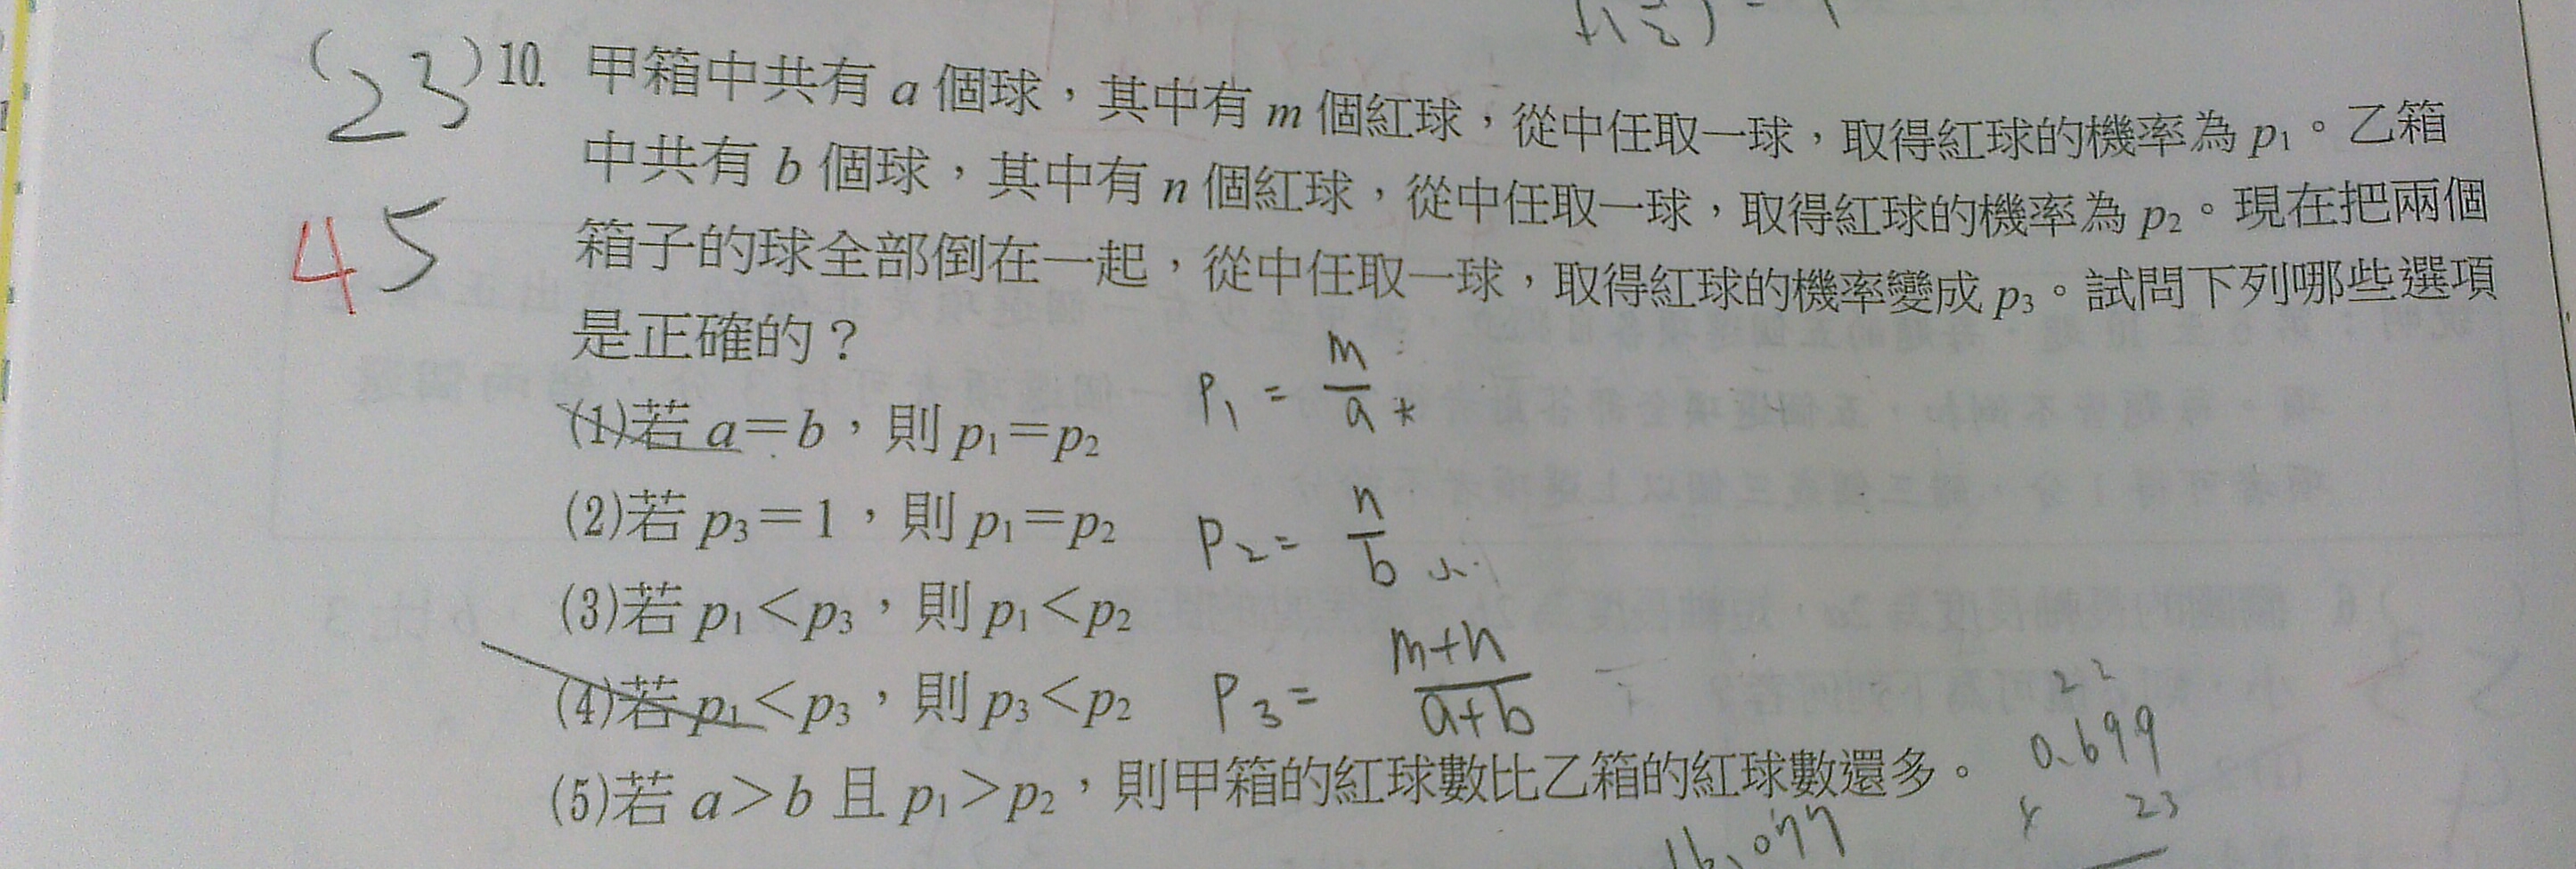 (23)10. 甲箱中共有 a 個球，其中有 m 個紅球，從中任取一球，取得紅球的機率為 p₁。乙箱
中共有 b 個球，其中有 n 個紅球，從中任取一球，取得紅球的機率為 p₂。現在把兩個
45 箱子的球全部倒在一起，從中任取一球，取得紅球的機率變成 p₃。試問下列哪些選項
是正確的？
(1)若 a＝b，則 p₁＝p₂
P₁ = m/a
(2)若 p₃＝1，則 p₁＝p₂
P₂ = n/b
(3)若 p₁＜p₃，則 p₁＜p₂
(4)若 p₁＜p₃，則 p₃＜p₂
P₃ = m+n/a+b
(5)若 a＞b 且 p₁＞p₂，則甲箱的紅球數比乙箱的紅球數還多。
22
0.699
x 23
16.077